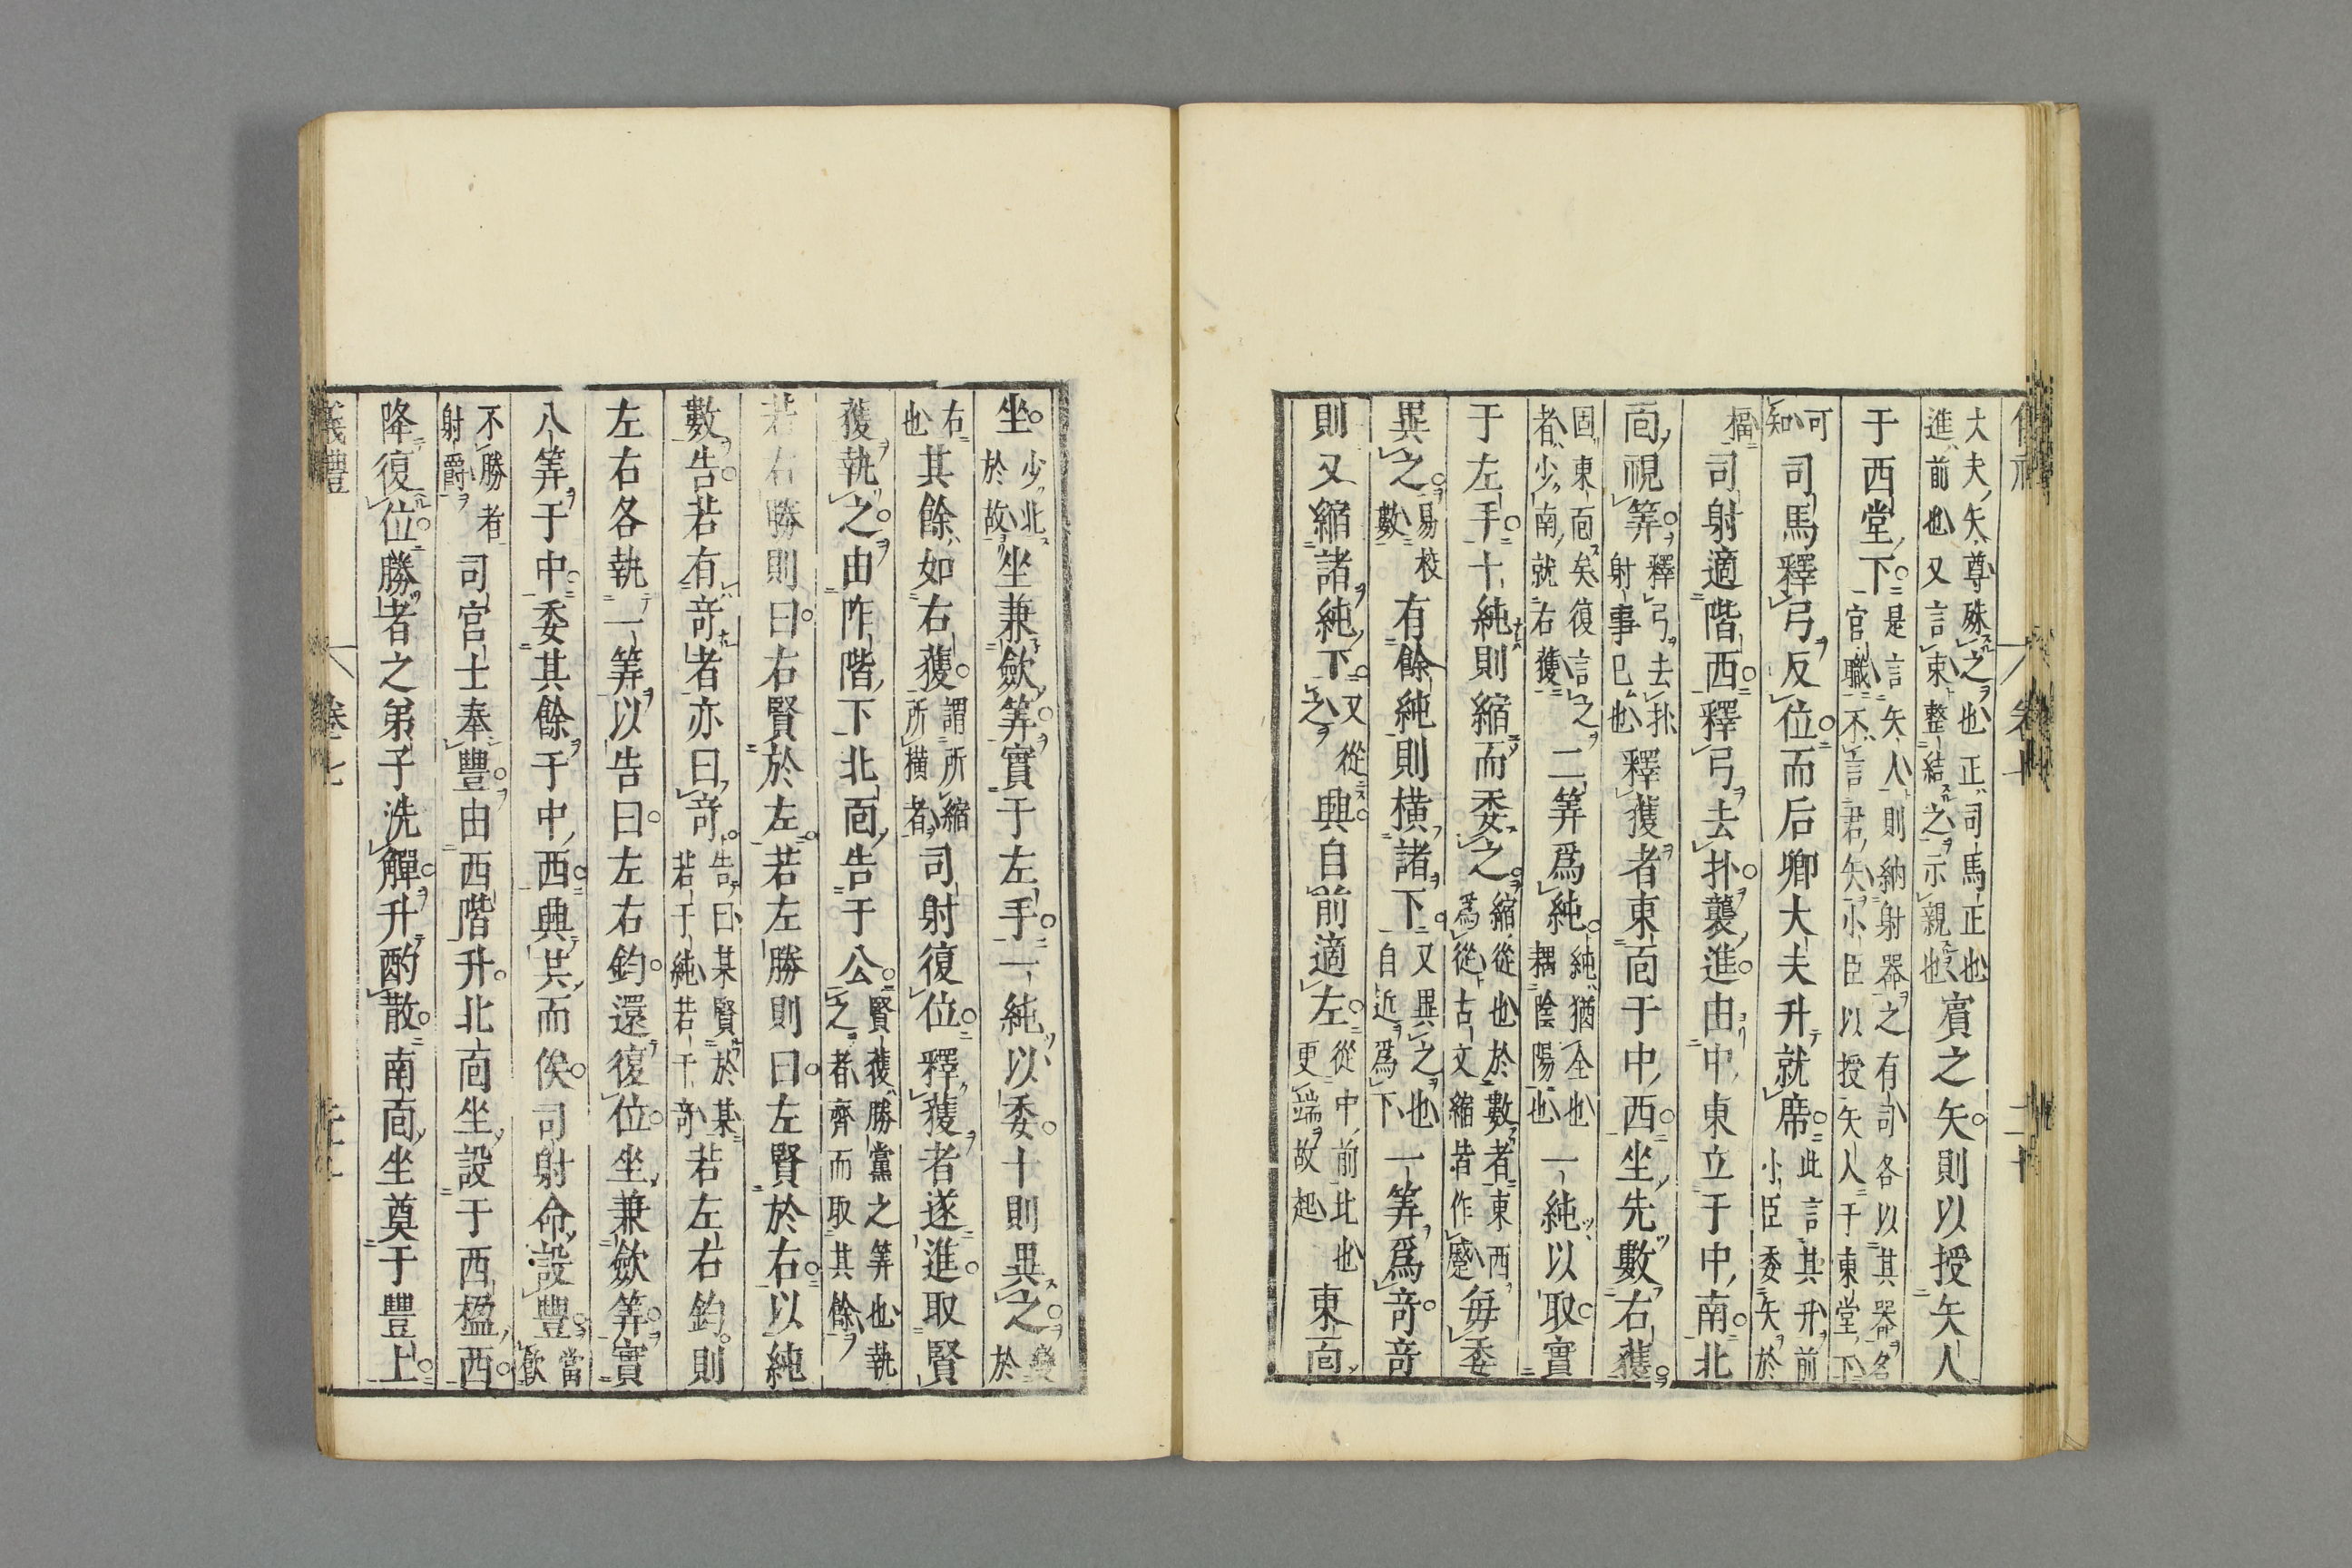 大夫矢尊殊之也正司馬正也
進前也又言束整結之示親也賓之矢則以授矢人
于西堂下是言矢人則納射器之有司各以其器名
官職不言君矢小臣以授矢人于東堂下
可知司馬釋弓反位而后卿大夫升就席此言其升前
小臣委矢於
楅司射適階西釋弓去扑襲進由中東立于中南北
面視筭釋弓去扑
射事已也釋獲者東面于中西坐先數右獲
固東面矣復言之
者少南就右獲二筭爲純純猶全也
耦陰陽也一純以取實
于左手十純則縮而委之縮從也於數者東西
爲從古文縮皆作蹙每委
異之易校
數有餘純則橫諸下又異之也
自近爲下一筭爲奇奇
則又縮諸純下又從
之興自前適左從中前北也
更端故起東面
坐少北
於故坐兼斂筭實于左手一純以委十則異之變
於
右
也其餘如右獲謂所縮
所橫者司射復位釋獲者遂進取賢
獲執之由阼階下北面告于公賢獲勝黨之筭也執
之者齊而取其餘
若右勝則曰右賢於左若左勝則曰左賢於右以純
數告若有奇者亦曰奇告曰某賢於某
若干純若干奇若左右鈞則
左右各執一筭以告曰左右鈞還復位坐兼斂筭實
八筭于中委其餘于中西興共而俟司射命設豐當
飲
不勝者
射爵司宮士奉豐由西階升北面坐設于西楹西
降復位勝者之弟子洗觶升酌散南面坐奠于豐上
儀禮
卷七